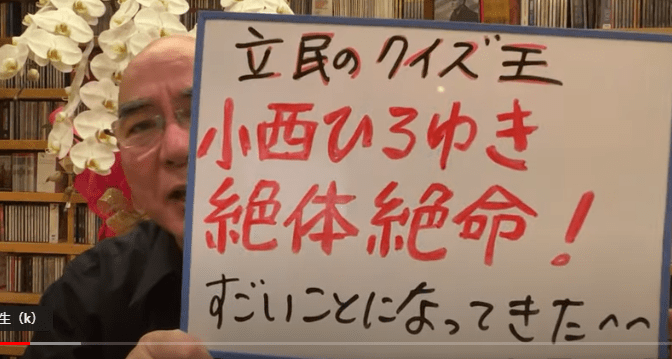 立民のクイズ王
小西ひろゆき
絶体絶命！
すごいことになってきた^^
生（k）